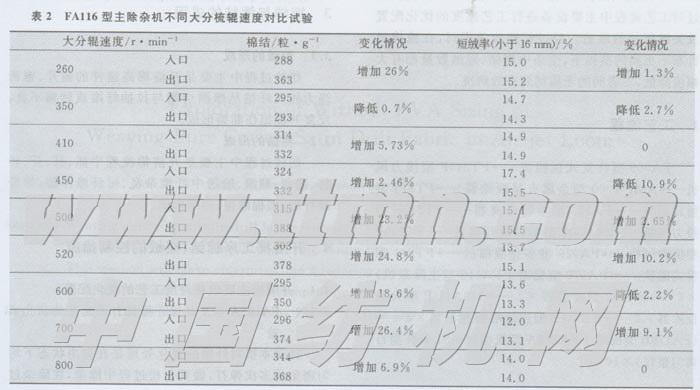 表 2 FA116 型主除杂机不同大分梳辊速度对比试验
大分辊速度/r·min⁻¹ 棉结/粒·g⁻¹ 变化情况 短绒率(小于 16 mm)/% 变化情况
260 入口 288 增加 26% 15.0 增加 1.3%
出口 363 15.2
350 入口 295 降低 0.7% 14.7 降低 2.7%
出口 293 14.3
410 入口 314 增加 5.73% 14.9 0
出口 332 14.9
450 入口 324 增加 2.46% 17.4 降低 10.9%
出口 332 15.5
500 入口 315 增加 23.2% 15.1
出口 388 15.5
520 入口 303 增加 24.8% 13.7 增加 10.2%
出口 378 15.1
600 入口 295 增加 18.6% 13.6 降低 2.2%
出口 350 13.3
700 入口 296 增加 26.4% 12.0 增加 9.1%
出口 374 13.1
800 入口 344 增加 6.9% 14.0 0
出口 368 14.0
www.ttmn.com
中国纺机网